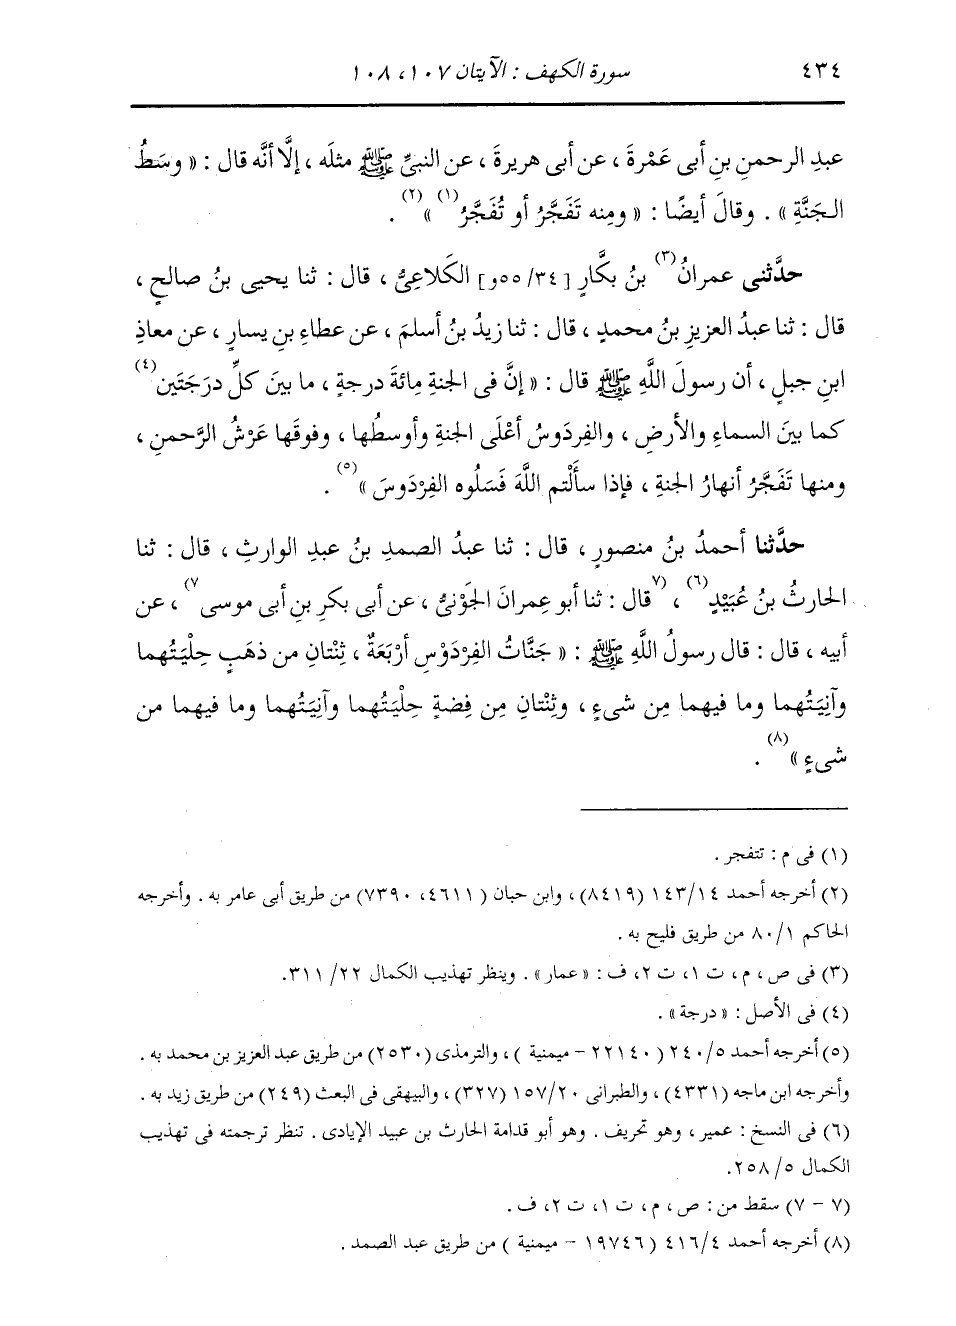 ٤٣٤ سورة الكهف : الآيتان ١٠٧، ١٠٨
عبدِ الرحمنِ بنِ أبى عَمْرةَ ، عن أبى هريرةَ ، عن النبىِّ ﷺ مثلَه ، إلَّا أنَّه قال : « وسَطُ
الجَنَّةِ » . وقالَ أيضًا : « ومِنه تَفَجَّرُ أو تُفَجَّرُ (١) » (٢) .
حدَّثنى عمرانُ (٣) بنُ بكَّارٍ [٣٤/ ٥٥و] الكَلَاعِىُّ ، قال : ثنا يحيى بنُ صالحٍ ،
قال : ثنا عبدُ العزيزِ بنُ محمدٍ ، قال : ثنا زيدُ بنُ أسلمَ ، عن عطاءِ بنِ يسارٍ ، عن معاذِ
ابنِ جبلٍ ، أن رسولَ اللَّهِ ﷺ قال : « إنَّ فى الجنةِ مِائةَ درجةٍ ، ما بينَ كلِّ درَجَتَين (٤)
كما بينَ السماءِ والأرضِ ، والفِردَوسُ أعْلَى الجنةِ وأوسطُها ، وفوقَها عَرْشُ الرَّحمنِ ،
ومنها تَفَجَّرُ أنهارُ الجنةِ ، فإذا سألْتم اللَّهَ فَسَلُوه الفِرْدَوسَ » (٥) .
حدَّثنا أحمدُ بنُ منصورٍ ، قال : ثنا عبدُ الصمدِ بنُ عبدِ الوارثِ ، قال : ثنا
الحارثُ بنُ عُبَيْدٍ (٦) ، (٧ قال : ثنا أبو عِمرانَ الجَوْنىُّ ، عن أبى بكرِ بنِ أبى موسى ٧) ، عن
أبيه ، قال : قال رسولُ اللَّهِ ﷺ : « جَنَّاتُ الفِردَوْسِ أرْبَعَةٌ ، ثِنْتانِ من ذهَبٍ حِلْيَتُهما
وآنِيَتُهما وما فيهما مِن شىءٍ ، وثِنْتانِ مِن فِضةٍ حِلْيَتُهما وآنِيَتُهما وما فيهما من
شىءٍ » (٨) .
(١) فى م : تتفجر .
(٢) أخرجه أحمد ١٤٣/١٤ (٨٤١٩) ، وابن حبان ( ٤٦١١، ٧٣٩٠) من طريق أبى عامر به . وأخرجه
الحاكم ٨٠/١ من طريق فليح به .
(٣) فى ص ، م ، ت ١، ت ٢، ف : «عمار» . وينظر تهذيب الكمال ٢٢/ ٣١١.
(٤) فى الأصل : « درجة» .
(٥) أخرجه أحمد ٢٤٠/٥ ( ٢٢١٤٠ - ميمنية ) ، والترمذى (٢٥٣٠) من طريق عبد العزيز بن محمد به .
وأخرجه ابن ماجه (٤٣٣١) ، والطبرانى ١٥٧/٢٠ (٣٢٧) ، والبيهقى فى البعث (٢٤٩) من طريق زيد به .
(٦) فى النسخ : عمير ، وهو تحريف . وهو أبو قدامة الحارث بن عبيد الإيادى . تنظر ترجمته فى تهذيب
الكمال ٥/ ٢٥٨.
(٧ - ٧) سقط من : ص ، م ، ت ١، ت ٢، ف .
(٨) أخرجه أحمد ٤١٦/٤ ( ١٩٧٤٦ - ميمنية ) من طريق عبد الصمد .